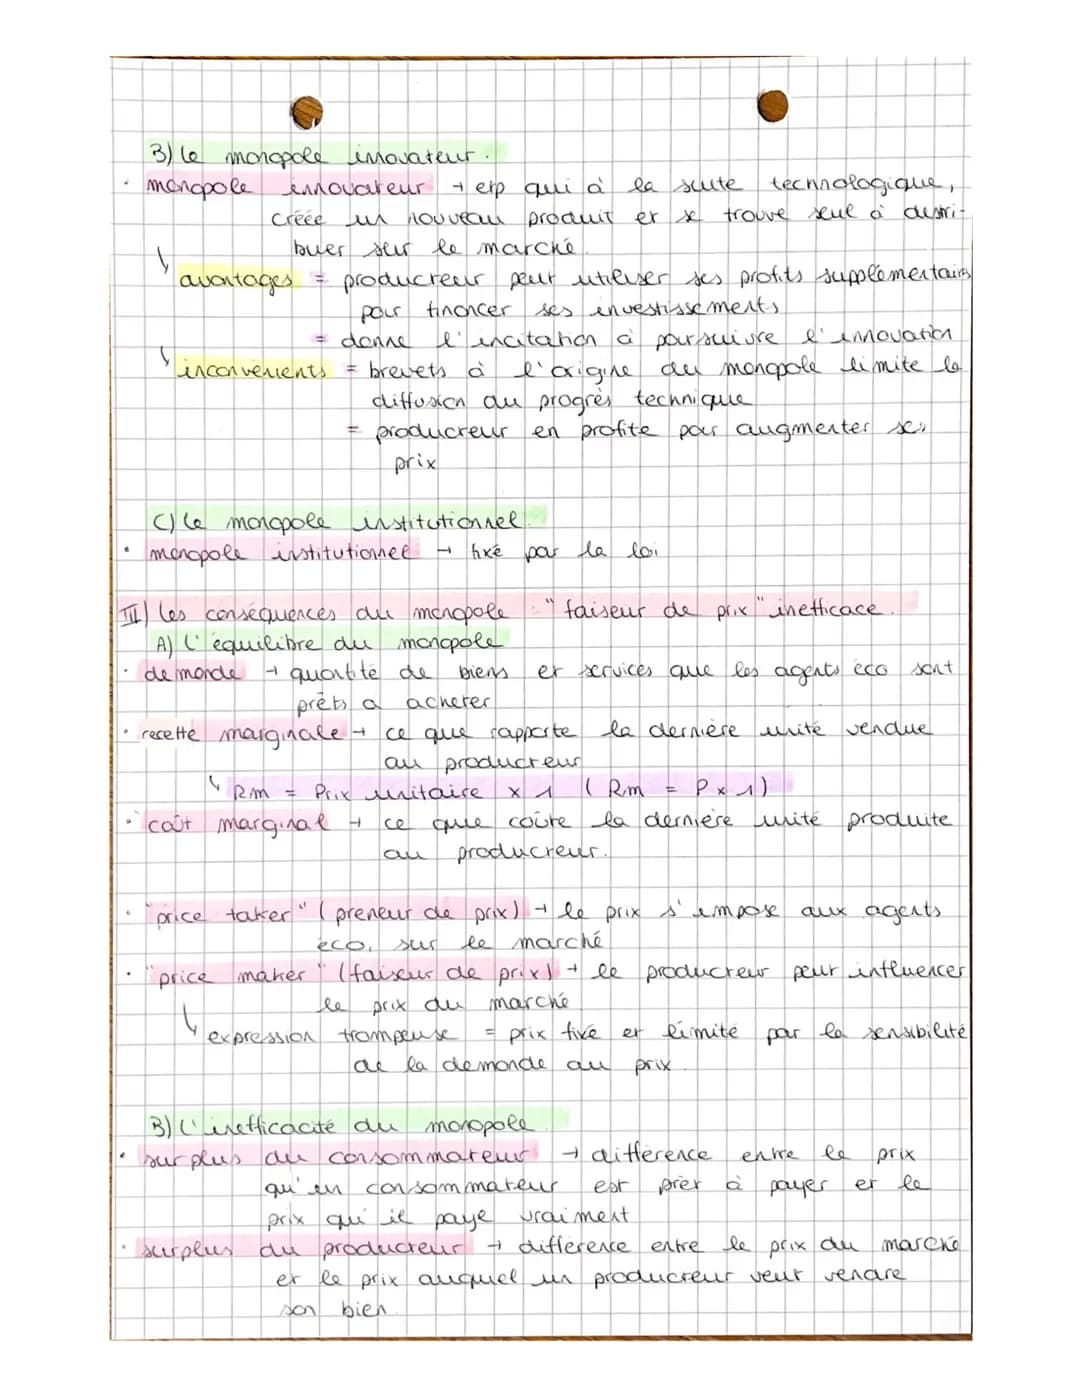 B) Le monopole innovateur.
• monopole innovateur → erp qui à la suite technologique,
créée un nouveau produit et se trouve seul à distri-
buer sur le marché.
↳ avantages = producteur peut utiliser ses profits supplémentaires
pour financer ses investissements
= donne l'incitation à poursuivre l'innovation
↳ inconvénients = brevets à l'origine du monopole limite la
diffusion du progrès technique
= producteur en profite pour augmenter ses
prix
C) Le monopole institutionnel.
• monopole institutionnel → fixé par la loi
III) Les conséquences du monopole : "faiseur de prix" inefficace.
A) L'équilibre du monopole
• demande → quantité de biens et services que les agents éco sont
prêts a acheter
• recette marginale → ce que rapporte la dernière unité vendue
au producteur
↳ Rm = Prix unitaire x 1 (Rm = P x 1)
• coût marginal → ce que coûte la dernière unité produite
au producteur.
• "price taker" (preneur de prix) → le prix s'impose aux agents
éco. sur le marché
• "price maker" (faiseur de prix) → le producteur peut influencer
le prix du marché
↳ expression trompeuse = prix fixé et limité par la sensibilité
de la demande au prix.
B) L'inefficacité du monopole
• surplus du consommateur → différence entre le prix
qu'un consommateur est prêt à payer et le
prix qu'il paye vraiment
• surplus du producteur → différence entre le prix du marché
et le prix auquel un producteur veut vendre
son bien.